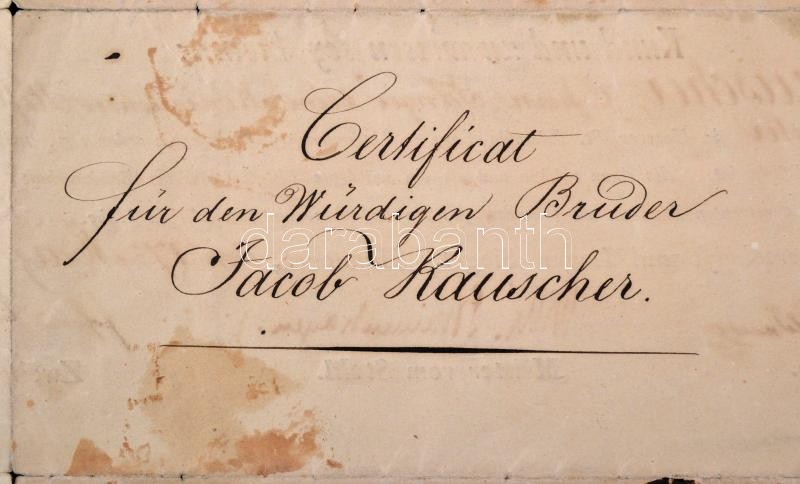 Certificat
für den Würdigen Bruder
Jacob Rauscher.
darabanth